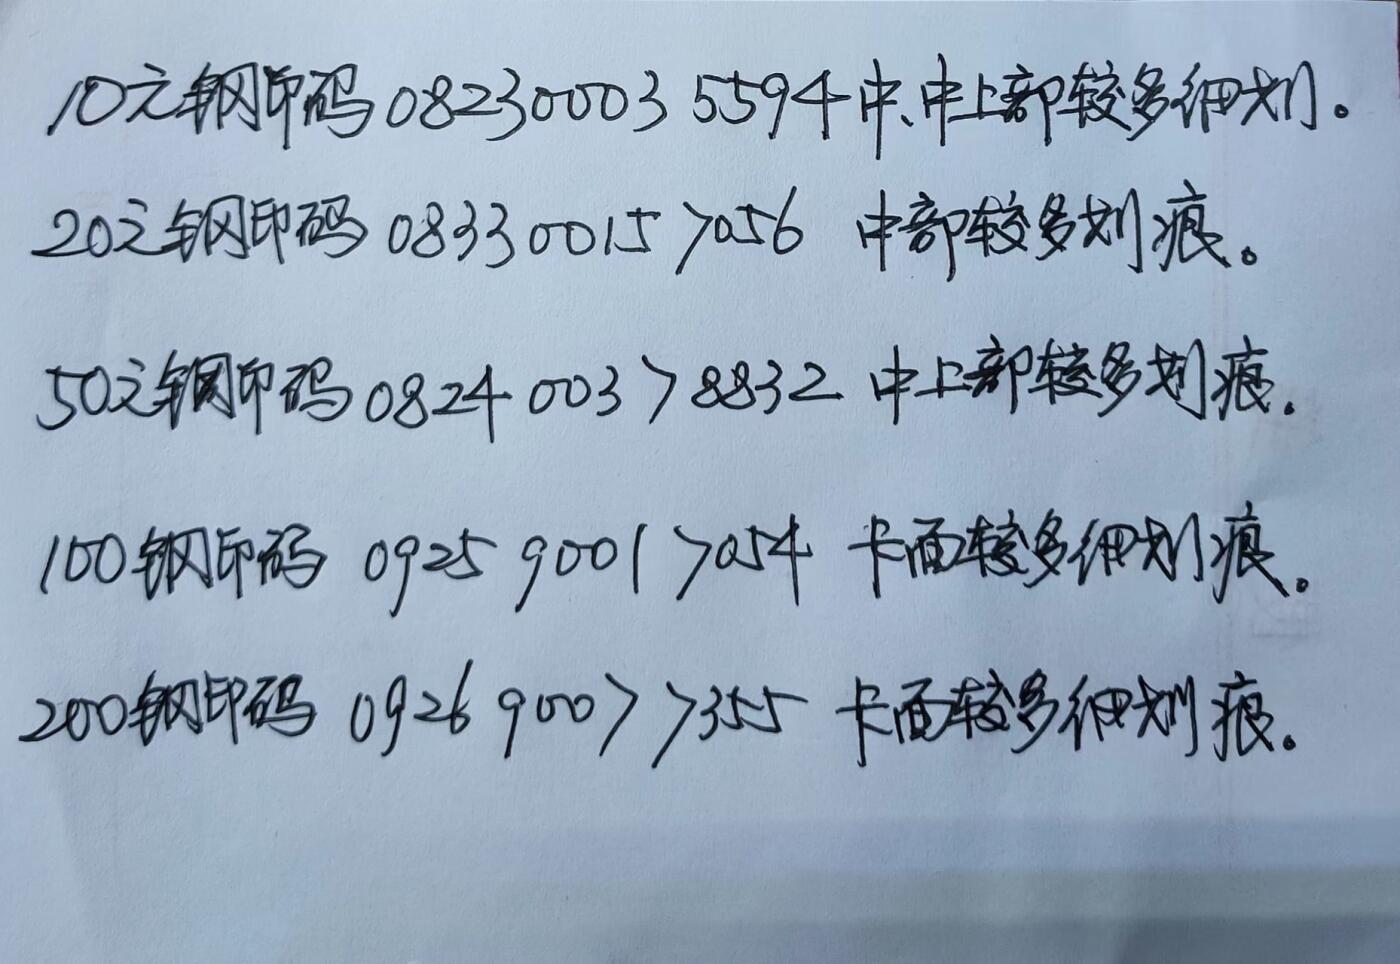 10元钢印码 08230003 5594 中、中上部较多细划。
20元钢印码 08330015 7056 中部较多划痕。
50元钢印码 0824 003 7 8832 中上部较多划痕.
100钢印码 0925 9001 7054 卡面较多细划痕。
200钢印码 0926 9007 7355 卡面较多细划痕。